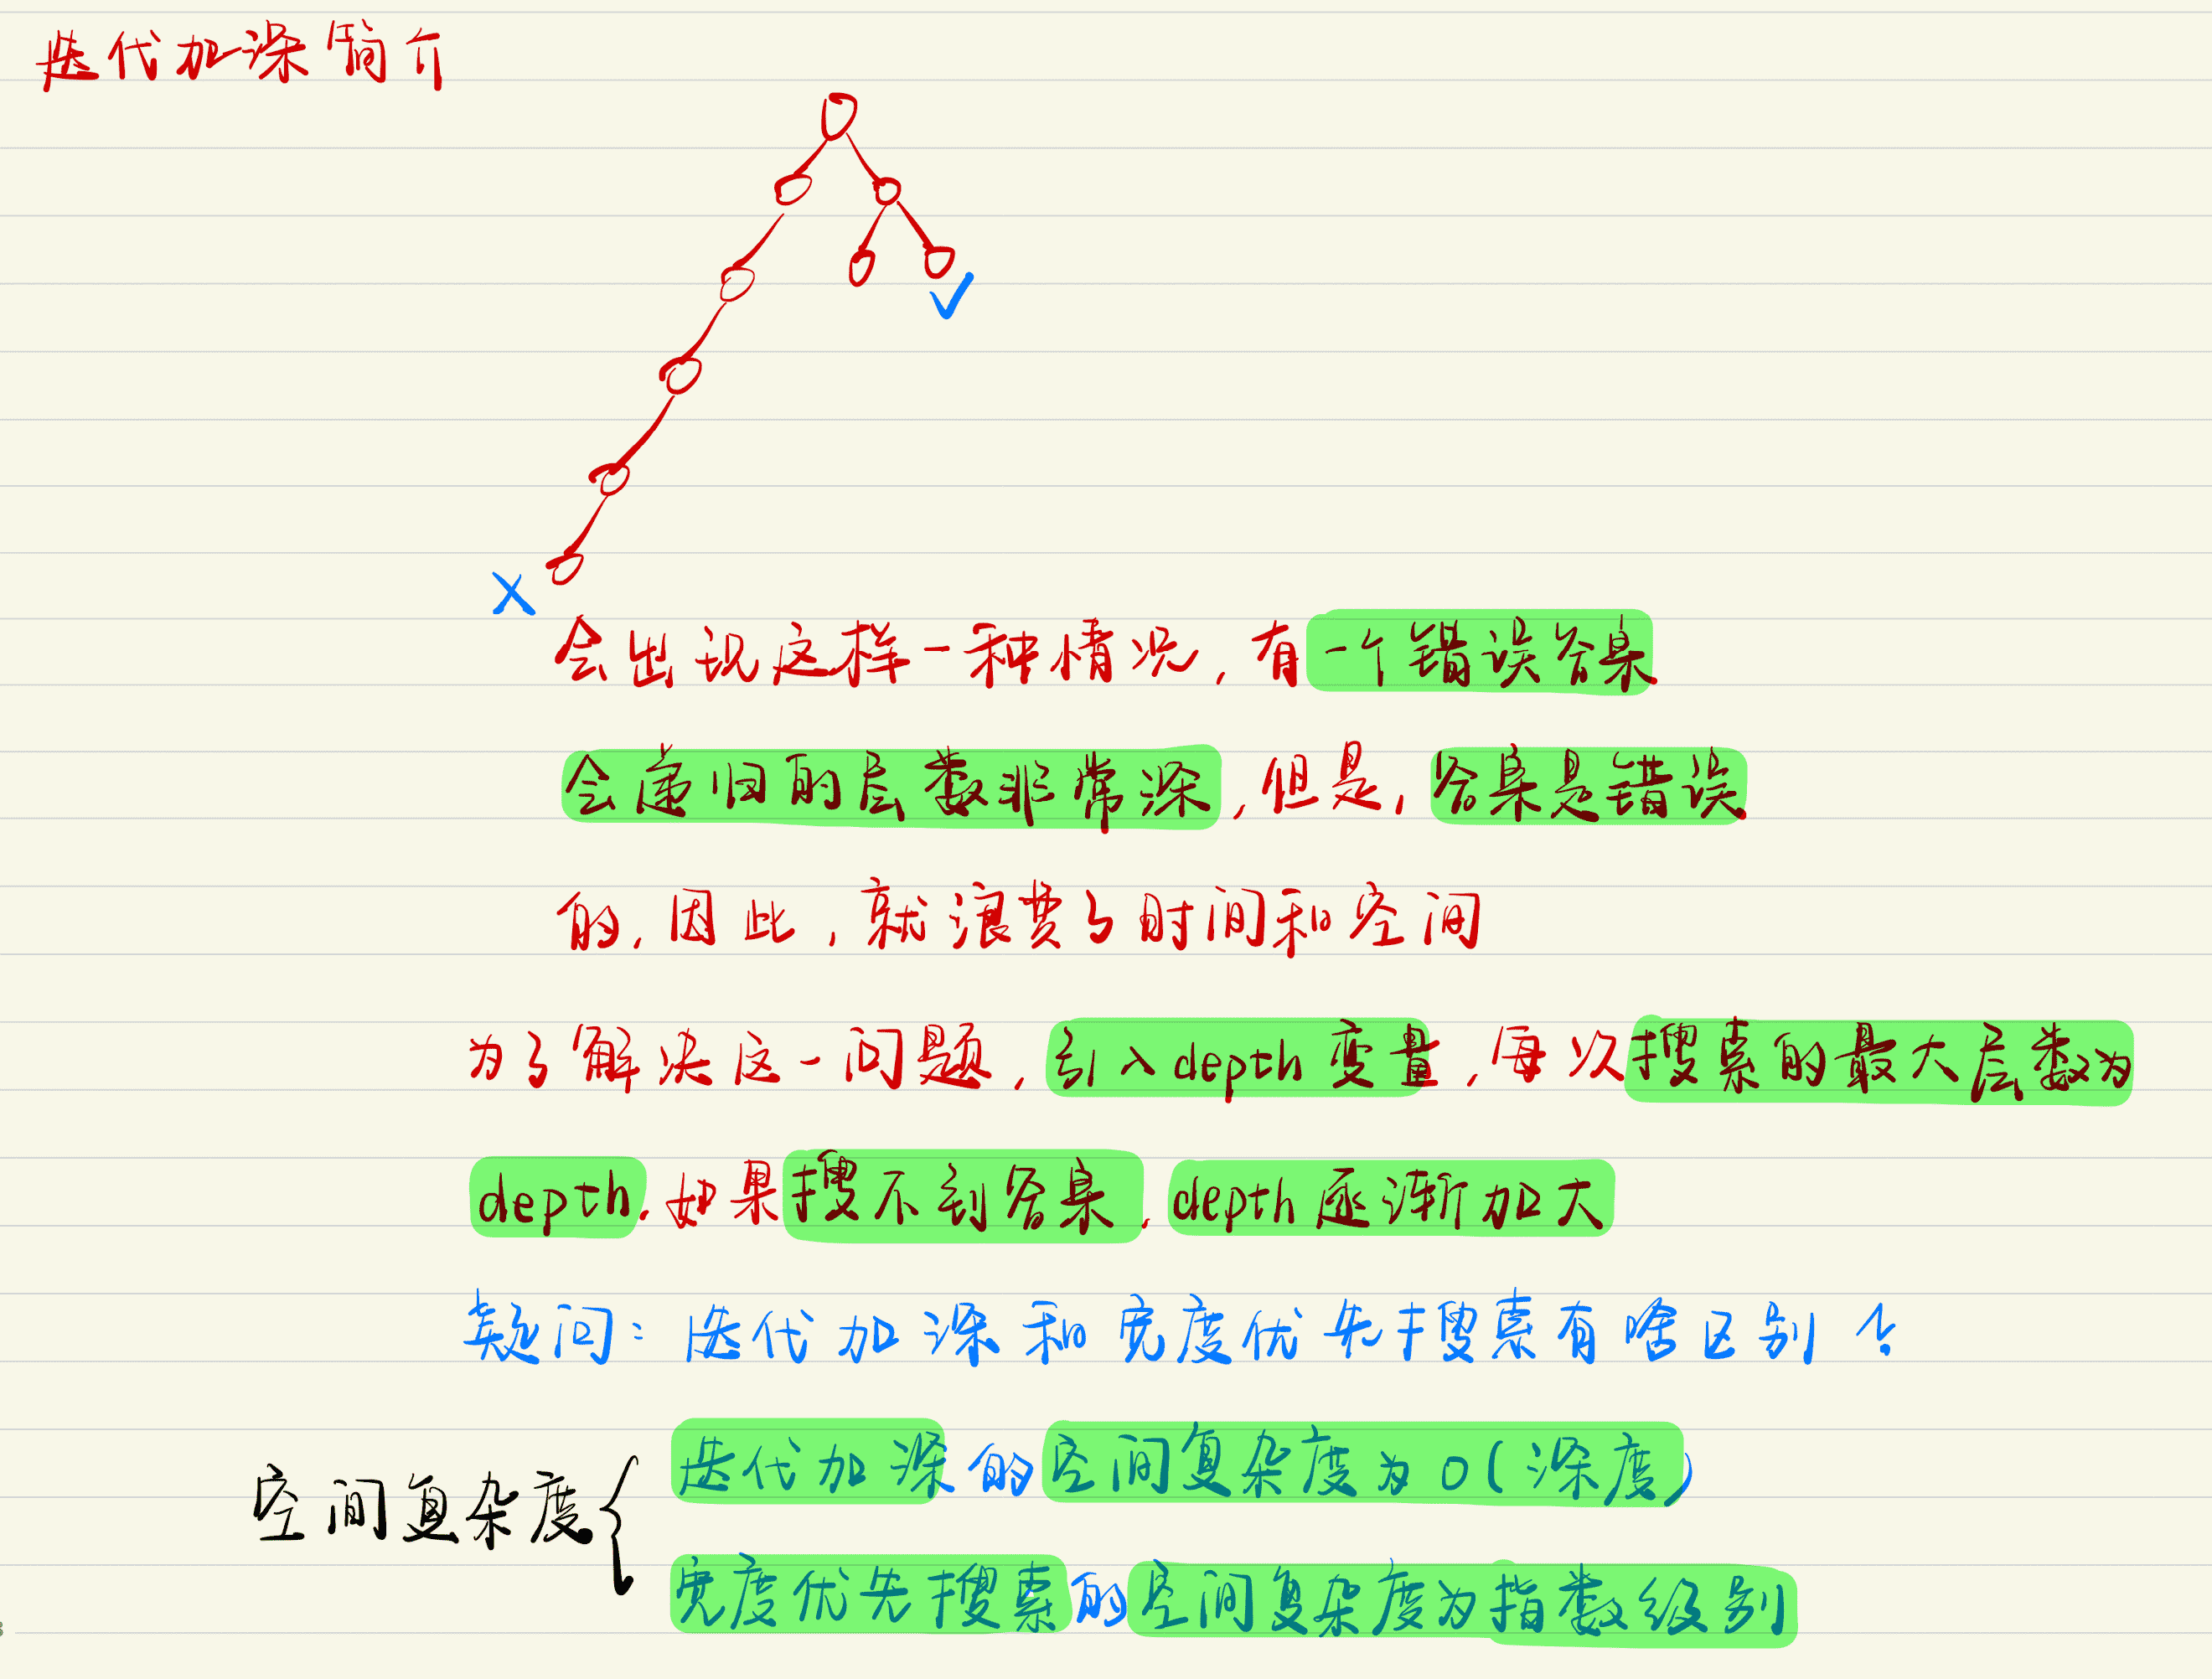 迭代加深简介
会出现这样一种情况,有一个错误答案
会递归的层数非常深,但是,答案是错误
的,因此,就浪费了时间和空间
为了解决这一问题,引入depth变量,每次搜索的最大层数为
depth,如果搜不到答案,depth逐渐加大
疑问:迭代加深和宽度优先搜索有啥区别?
空间复杂度{
迭代加深的空间复杂度为O(深度)
宽度优先搜索的空间复杂度为指数级别